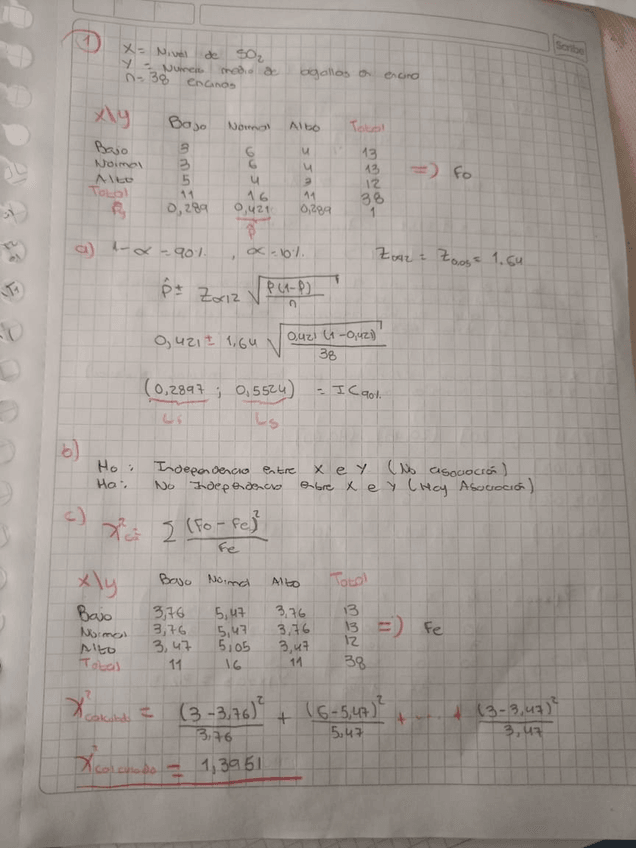 Scribe
1) X = Nivel de SO2
Y = Numero medio de agallas en encino
n = 38 encinos
X\Y Bajo Normal Alto Total
Bajo 3 6 4 13
Normal 3 6 4 13 => Fo
Alto 5 4 3 12
Total 11 16 11 38
0,289 0,421 0,289 1
p̂
a) 1-α = 90% , α = 10% Zα/2 = Z0,05 = 1,64
p̂ ± Zα/2 √(p(1-p)/n)
0,421 ± 1,64 √(0,421 (1-0,421)/38)
(0,2897 ; 0,5524) = IC90%
Li Ls
b)
Ho: Independencia entre X e Y (No asociación)
Ha: No Independencia entre X e Y (Hay Asociación)
c) X²c = Σ (Fo - Fe)²/Fe
X\Y Bajo Normal Alto Total
Bajo 3,76 5,47 3,76 13
Normal 3,76 5,47 3,76 13 => Fe
Alto 3,47 5,05 3,47 12
Total 11 16 11 38
X²calculado = (3-3,76)²/3,76 + (6-5,47)²/5,47 + ---- + (3-3,47)²/3,47
X²calculado = 1,3951